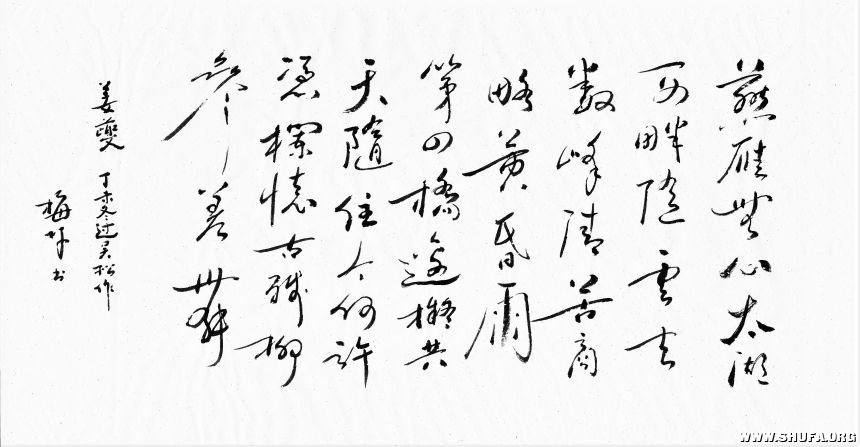 燕雁無心太湖
西畔隨雲去
數峰清苦商
略黄昏雨
第四橋邊擬共
天隨住今何許
憑欄懷古殘柳
參差舞
姜夔 丁未冬过吴松作
梅书
WWW.SHUFA.ORG